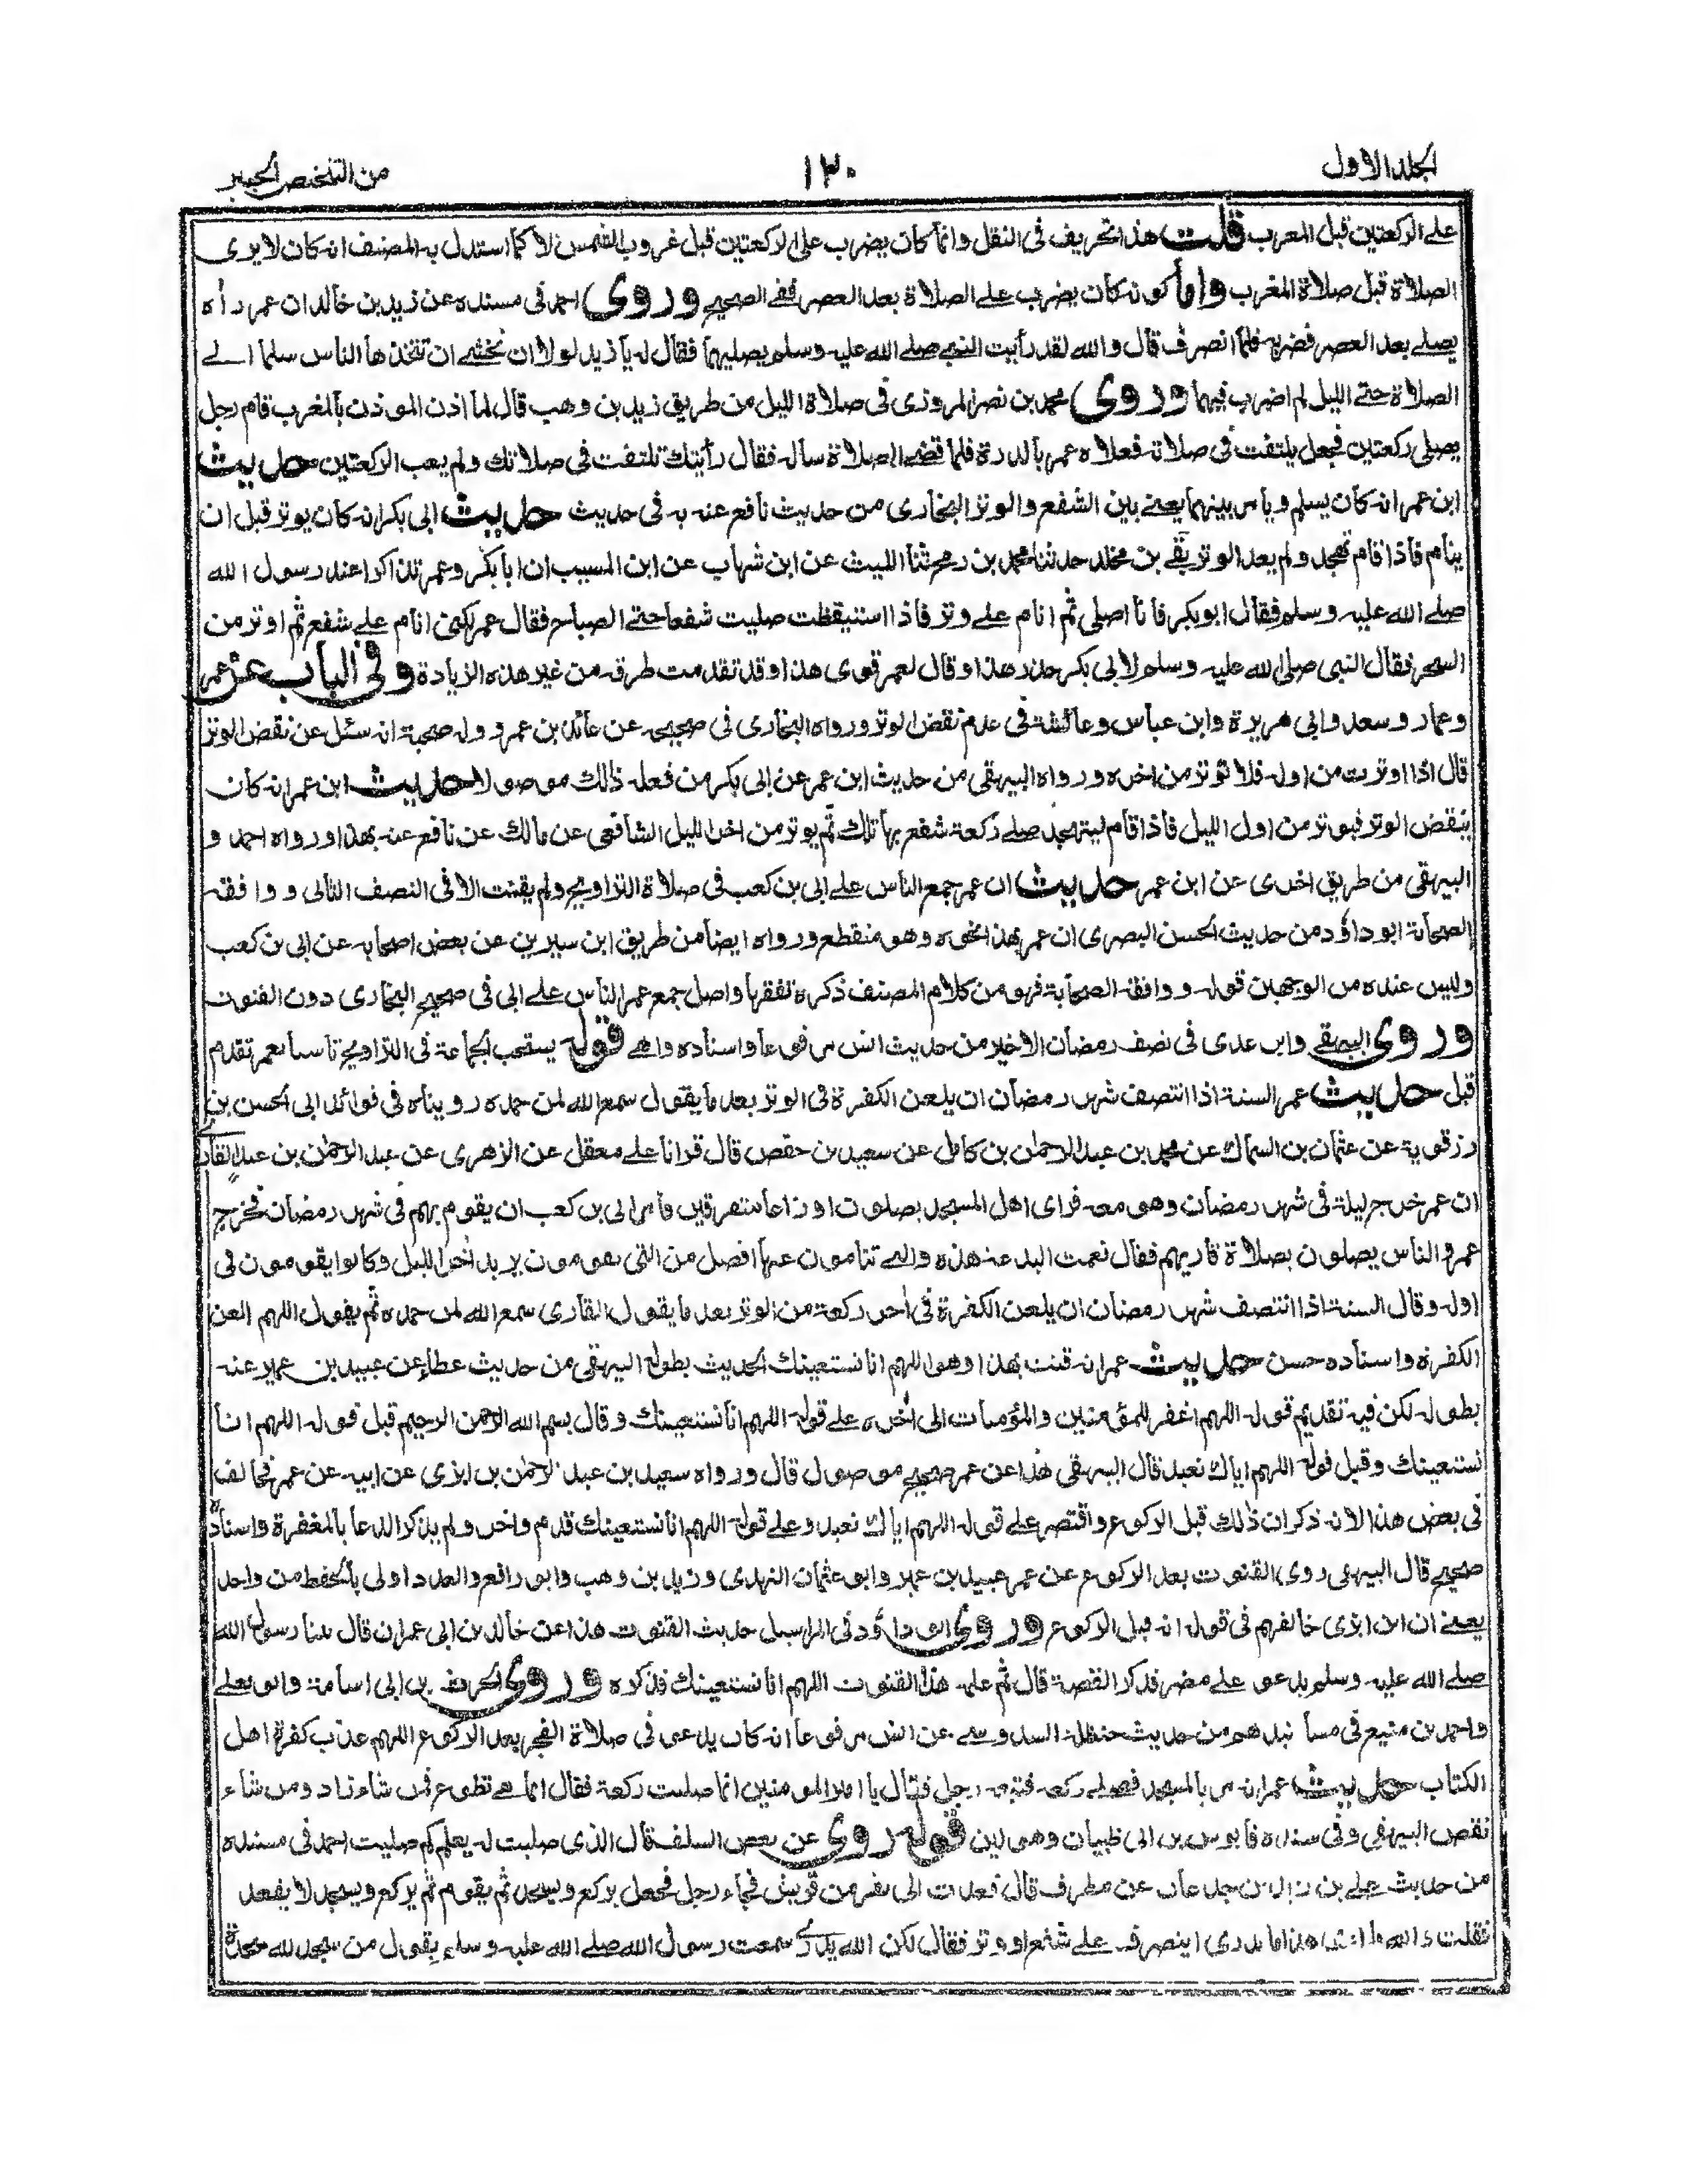 الجلد الاول
١٢٠
من التلخيص الحبير
على الركعتين قبل المغرب قلت هذا تحريف فى النقل وانما كان يضرب على الركعتين قبل غروب الشمس لا كما استدل به المصنف انه كان لا يرى
الصلاة قبل صلاة المغرب واما كونه كان يضرب على الصلاة بعد العصر ففى الصحيح وروى احمد فى مسنده عن زيد بن خالد ان عمر رأه
يصلى بعد العصر فضربه فلما انصرف قال والله لقد رأيت النبي صلى الله عليه وسلم يصليهما فقال له يا زيد لولا ان نخشى ان تتخذها الناس سلما الى
الصلاة حتى الليل لم اضرب فيهما وروى محمد بن نصر المروزى فى صلاة الليل من طريق زيد بن وهب قال لما اذن الموذن بالمغرب قام رجل
يصلى ركعتين فجعل يلتفت فى صلاته فعلاه عمر بالدرة فلما قضى الصلاة ساله فقال رأيتك تلتفت فى صلاتك ولم يعب الركعتين حديث
ابن عمر انه كان يسلم ويامر بينهما يعنى بين الشفع والوتر البخارى من حديث نافع عنه به فى حديث حديث ابى بكر انه كان يوتر قبل ان
ينام فاذا قام تهجد ولم يعد الوتر بقى بن مخلد حدثنا محمد بن رمح ثنا الليث عن ابن شهاب عن ابن المسيب ان ابا بكر وعمر تذاكرا عند رسول الله
صلى الله عليه وسلم فقال ابو بكر فانا اصلى ثم انام على وتر فاذا استيقظت صليت شفعا حتى الصباح فقال عمر لكنى انام على شفع ثم اوتر من
السحر فقال النبى صلى الله عليه وسلم لابى بكر حذر هذا وقال لعمر قوى هذا وقد تقدمت طرقه من غير هذه الزيادة وفى الباب عن عمر
وعمار وسعد وابى هريرة وابن عباس وعائشة فى عدم نقض الوتر ورواه البخارى فى صحيحه عن عائذ بن عمرو وله صحبة انه سئل عن نقض الوتر
قال اذا اوترت من اوله فلا توتر من اخره ورواه البيهقى من حديث ابن عمر عن ابى بكر من فعله ذلك موصولا حديث ابن عمر انه كان
ينقض الوتر فيوتر من اول الليل فاذا قام ليتهجد صلى ركعة شفع بها تلك ثم يوتر من اخر الليل الشافعى عن مالك عن نافع عنه بهذا ورواه احمد و
البيهقى من طريق اخرى عن ابن عمر حديث ان عمر جمع الناس على ابى بن كعب فى صلاة التراويح ولم يقنت الا فى النصف الثانى ووافقه
الصحابة ابو داؤد من حديث الحسن البصرى ان عمر بهذا نحوه وهو منقطع ورواه ايضا من طريق ابن سيرين عن بعض اصحابه عن ابى بن كعب
وليس عنده من الوجهين قوله ووافقه الصحابة فهو من كلام المصنف ذكره تفقها واصل جمع عمر الناس على ابى فى صحيح البخارى دون القنوت
وروى البيهقى وابن عدى فى نصف رمضان الاخير من حديث انس مرفوعا واسناده واهى قوله يستحب الجماعة فى التراويح تاسيا بعمر تقدم
قبل حديث عمر السنة اذا انتصف شهر رمضان ان يلعن الكفرة فى الوتر بعد ما يقول سمع الله لمن حمده رويناه فى فوائد ابى الحسن بن
رزقوية عن عثمان بن السماك عن محمد بن عبد الرحمن بن كامل عن سعيد بن حفص قال قرانا على معقل عن الزهرى عن عبد الرحمن بن عبد القارى
ان عمر خرج ليلة فى شهر رمضان وهو معه فراى اهل المسجد يصلون اوزاعا متفرقين فامر ابى بن كعب ان يقوم بهم فى شهر رمضان فخرج
عمر والناس يصلون بصلاة قاريهم فقال نعمت البدعة هذه والتى تنامون عنها افضل من التى يقومون يريد اخر الليل وكانوا يقومون فى
اوله وقال السنة اذا انتصف شهر رمضان ان يلعن الكفرة فى اخر ركعة من الوتر بعد ما يقول القارى سمع الله لمن حمده ثم يقول اللهم العن
الكفرة واسناده حسن حديث عمر انه قنت بهذا وهو اللهم انا نستعينك الحديث بطوله البيهقى من حديث عطاء عن عبيد بن عمير عنه
بطوله لكن فيه تقديم قوله اللهم اغفر للمؤمنين والمؤمنات الى اخره على قوله اللهم انا نستعينك وقال بسم الله الرحمن الرحيم قبل قوله اللهم انا
نستعينك وقبل قوله اللهم اياك نعبد قال البيهقى هذا عن عمر صحيح موصول قال ورواه سعيد بن عبد الرحمن بن ابزى عن ابيه عن عمر فخالف
فى بعض هذا لانه ذكر ان ذلك قبل الركوع واقتصر على قوله اللهم اياك نعبد وعلى قوله اللهم انا نستعينك قدم واخر ولم يذكر الدعا بالمغفرة واسناده
صحيح قال البيهقى روى القنوت بعد الركوع عن عمر عبيد بن عمير وابو عثمان النهدى وزيد بن وهب وابو رافع والعدد اولى بالحفظ من واحد
يعنى ان ابن ابزى خالفهم فى قوله انه قبل الركوع وروى ابو داؤد فى المراسيل حديث القنوت هذا عن خالد بن ابى عمران قال بينا رسول الله
صلى الله عليه وسلم يدعو على مضر فذكر القصة قال ثم علمه هذا القنوت اللهم انا نستعينك فذكره وروى الحرث بن ابى اسامة وابو يعلى
واحمد بن منيع فى مسانيدهم من حديث حنظلة السدوسى عن انس مرفوعا انه كان يدعو فى صلاة الفجر بعد الركوع اللهم عذب كفرة اهل
الكتاب حديث عمر انه مر بالمسجد فصلى ركعة فتبعه رجل فقال يا امير المومنين انما صليت ركعة فقال انما هى تطوع فمن شاء زاد ومن شاء
نقص البيهقى وفى سنده قابوس بن ابى ظبيان وهو لين قوله روى عن بعض السلف قال الذى صليت له يعلم كم صليت احمد فى مسنده
من حديث على بن زيد بن جدعان عن مطرف قال قعدت الى نفر من قريش فجاء رجل فجعل يركع ويسجد ثم يقوم ثم يركع ويسجد لا يقعد
فقلت والله ما ارى هذا ما يدرى اينصرف على شفع او وتر فقال لكن الله يدرى سمعت رسول الله صلى الله عليه وسلم يقول من سجد لله سجدة